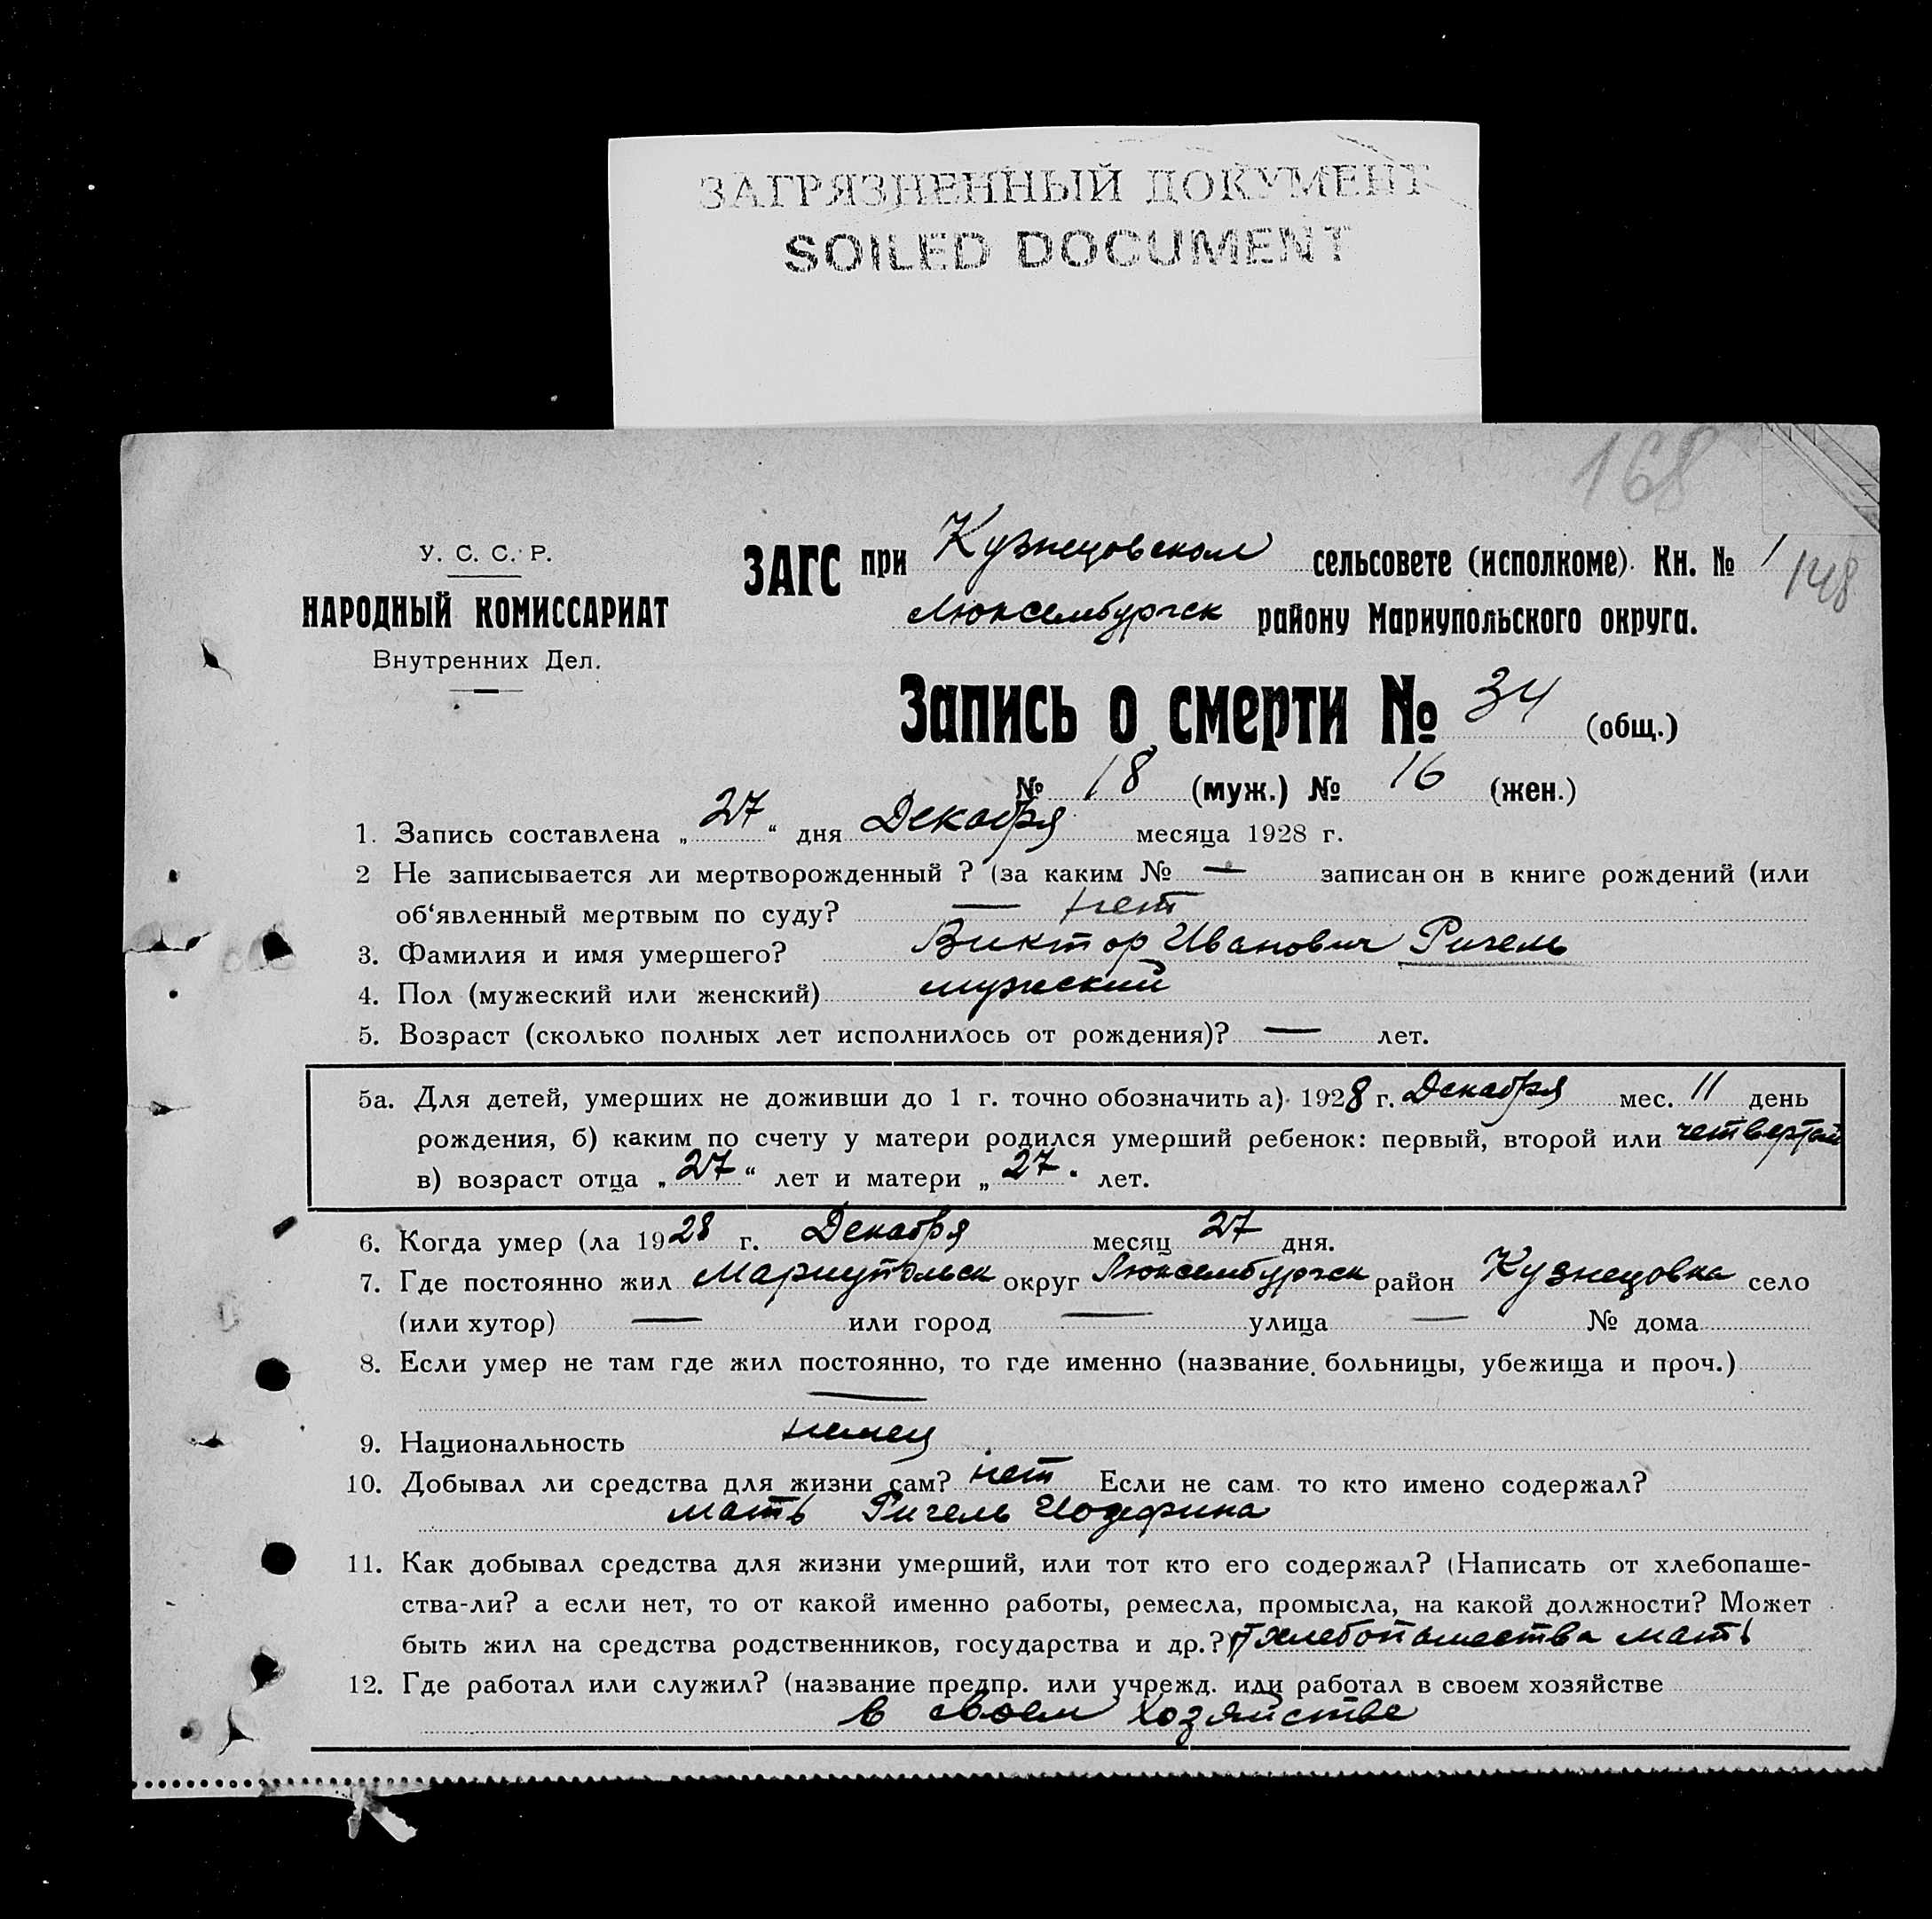 ЗАГРЯЗНЕННЫЙ ДОКУМЕНТ
SOILED DOCUMENT
168
У. С. С. Р.
НАРОДНЫЙ КОМИССАРИАТ
Внутренних Дел.
ЗАГС при Кузнецовском сельсовете (исполкоме). Кн. № 1
148
Люксембургск району Мариупольского округа.
Запись о смерти № 34 (общ.)
№ 18 (муж.) № 16 (жен.)
1. Запись составлена „ 27 “ дня Декабря месяца 1928 г.
2 Не записывается ли мертворожденный ? (за каким № — записан он в книге рождений (или
об‘явленный мертвым по суду? — нет
3. Фамилия и имя умершего? Виктор Иванович Ригель
4. Пол (мужеский или женский) мужеский
5. Возраст (сколько полных лет исполнилось от рождения)? — лет.
5а. Для детей, умерших не доживши до 1 г. точно обозначить а) 1928 г. Декабря мес. 11 день
рождения, б) каким по счету у матери родился умерший ребенок: первый, второй или четвертой
в) возраст отца „ 27 “ лет и матери „ 27 “ лет.
6. Когда умер (ла 1928 г. Декабря месяц 27 дня.
7. Где постоянно жил Мариупольск округ Люксембургск район Кузнецовка село
(или хутор) — или город — улица — № дома
8. Если умер не там где жил постоянно, то где именно (название больницы, убежища и проч.)
—
9. Национальность немец
10. Добывал ли средства для жизни сам? нет Если не сам то кто имено содержал?
мать Ригель Иозефина
11. Как добывал средства для жизни умерший, или тот кто его содержал? (Написать от хлебопаше-
ства-ли? а если нет, то от какой именно работы, ремесла, промысла, на какой должности? Может
быть жил на средства родственников, государства и др.?) хлебопашества мать
12. Где работал или служил? (название предпр. или учрежд. или работал в своем хозяйстве
в своем хозяйстве